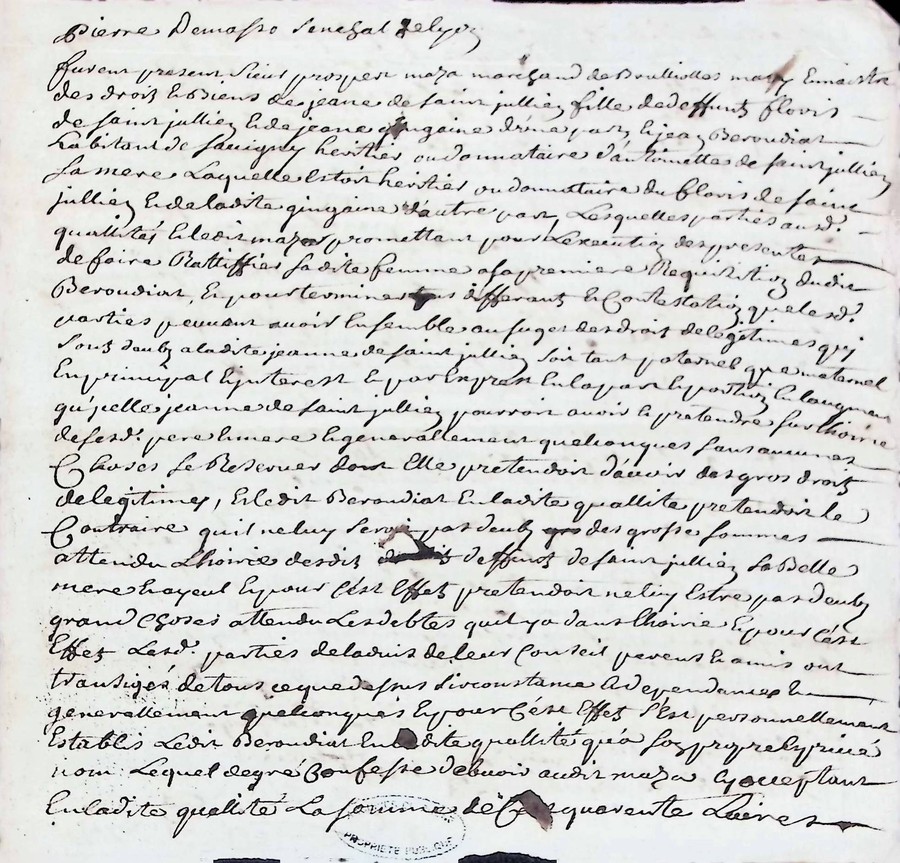 Pierre Demasso Senechal de Lyon
furent present Sieur prospert maza marchand de Brulliolles mary Et maistre
des droit Et Biens de jeane de saint jullien fille de deffuntz floris
de saint jullien Et de jeane gingaine d'une part Et jean Beroudiat
habitant de savigny heritier ou donnataire d'antoinette de saint jullien
sa mere Laquelle Estoit heritier ou donnataire du floris de saint
jullien Et de ladite gingaine d'autre part Lesquelles parties aux d.
quallités Et ledit maza promettant pour L'execution des presentes
de faire Rattiffier sa dite femme a sa premiere Requisition dudit
Beroudiat, Et pour terminer les differantz Et Contestation que lesd.
parties peuvent avoir Ensembles au suget des droit de legitimes qui
sont deubz a ladite jeanne de saint jullien soit tant paternel que maternel
En principal Et interest Et par Expres En la part Et portion En laugment
qu'icelle jeanne de saint jullien pourroit avoir Et pretendre sur Lhoirie
de sesd. pere Et mere Et generallement quelconques sans aucunes
Choses se Reserver dont Elle pretendoit d'avoir des gros droit
de legitimes, Et ledit Beroudiat En ladite quallité pretendoit le
Contraire qu'il ne luy seroit pas deub des grosse sommes
attendu Lhoirie desdit deffuntz de saint jullien sa Belle
mere Et ayeul Et pour C'est Effet pretendoit ne luy Estre pas deub
grand Choses attendu Les debtes qu'il y a dans Lhoirie Et pour C'est
Effet Lesd. parties de l'advis de leur Conseil parens Et amis ont
transigés de tous ce que dessus Circonstance Et dependances Et
generallement quelconques Et pour C'est Effet S'Est personnellement
Establis Ledit Beroudiat En ladite quallité qu'a son propre Et privé
nom Lequel de gré Confesse debvoir audit maza Cy acceptant
En ladite quallité La somme de Cent quarente Livres
PROPRIETE PUBLIQUE